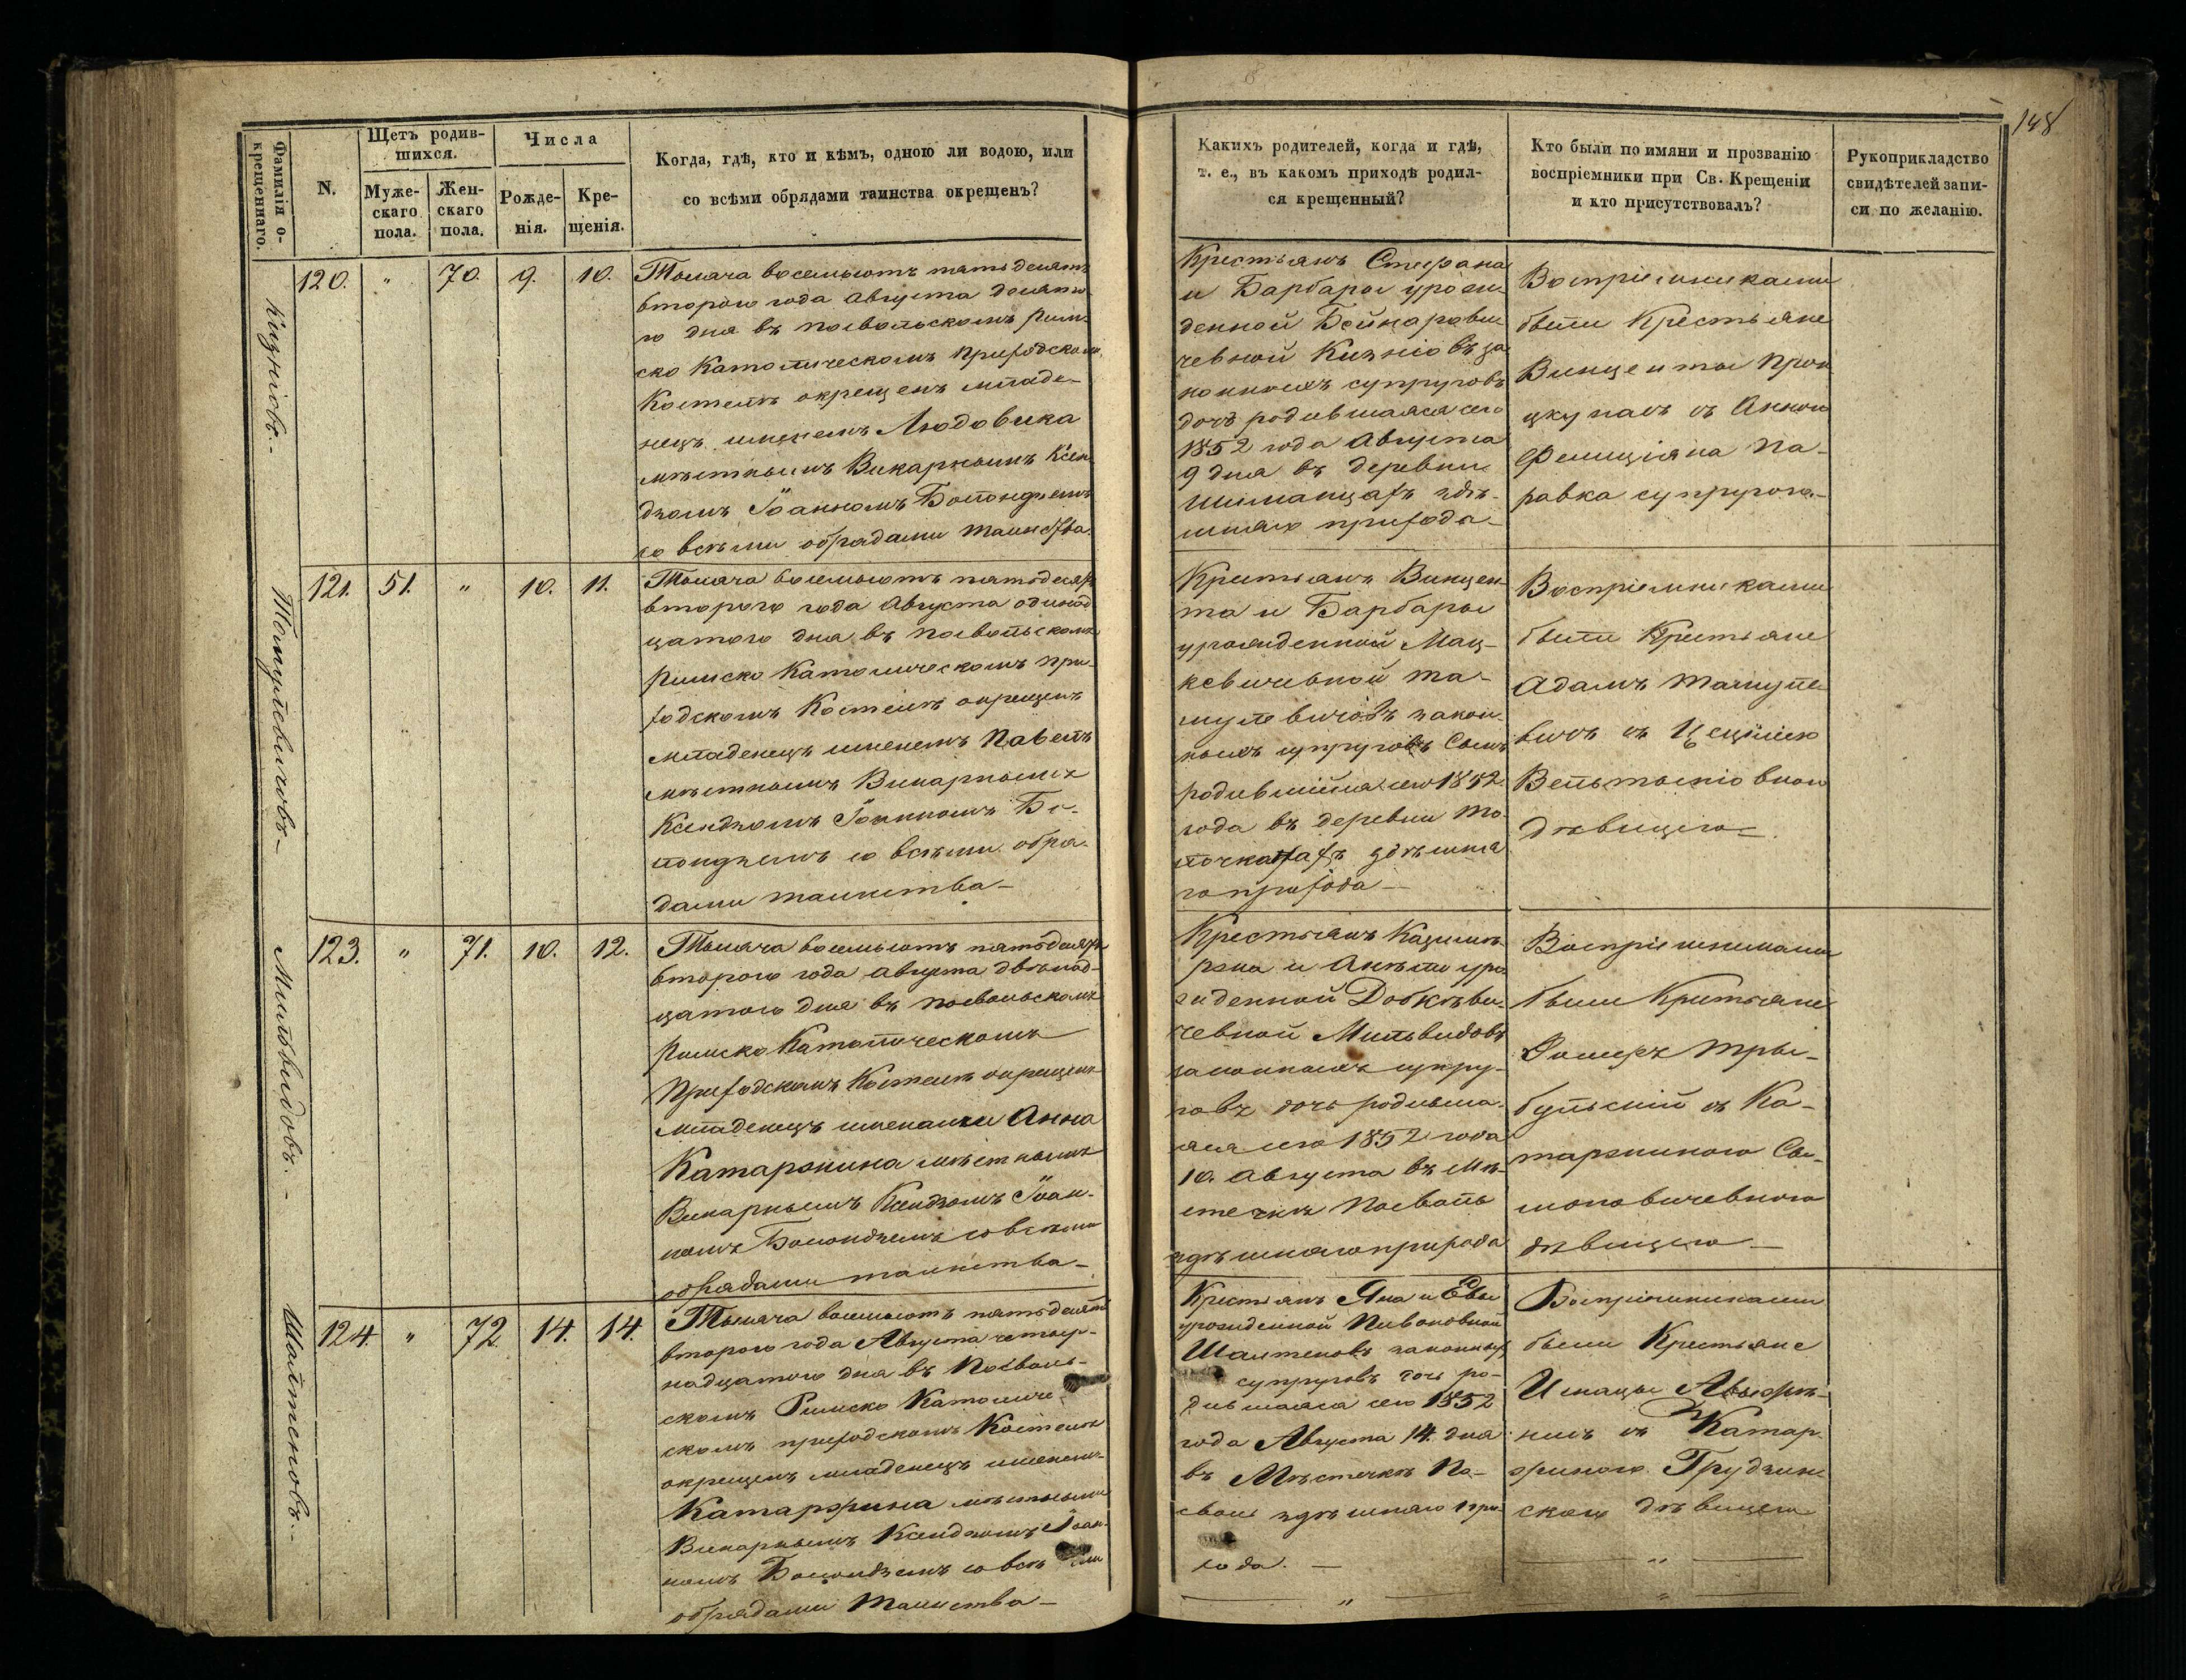 148
Фамилія о-
крещеннаго.
N.
Щетъ родив-
шихся.
Муже-
скаго
пола.
Жен-
скаго
пола.
Числа
Рожде-
нія.
Кре-
щенія.
Когда, гдѣ, кто и кѣмъ, одною ли водою, или
со всѣми обрядами таинства окрещенъ?
Какихъ родителей, когда и гдѣ,
т. е., въ какомъ приходѣ родил-
ся крещенный?
Кто были по имяни и прозванію
воспріемники при Св. Крещеніи
и кто присутствовалъ?
Рукоприкладство
свидѣтелей запи-
си по желанію.
120. " 70. 9. 10.
Тысяча восемьсотъ пятьдесятъ
второго года Августа десята-
го дня въ Посвольскомъ Рим-
ско Католическомъ Приходскомъ
Костелѣ окрещенъ младе-
нецъ именемъ Людовика
мѣстнымъ Викарнымъ Ксен-
дзомъ Іоанномъ Болондземъ
со всѣми обрядами таинства.
Крестьянъ Стефана
и Барбары урожен-
денной Бейнарови
чевной Кизнісвъ за
конныхъ супруговъ
дочь родившаяся сего
1852 года Августа
9 дня въ деревни
Шиманцахъ здѣ-
шняго прихода
Воспріемниками
были Крестьяне
Винценты Прон
цкунасъ съ Анною
Фелиціяна Па-
равка супругою
121. 51. " 10. 11.
Томашевичовъ
Тысяча восемьсотъ пятьдесятъ
второго года Августа одинад
цатого дня въ Посвольскомъ
Римско Католическомъ При-
ходскомъ Костелѣ окрещенъ
младенецъ именемъ Павелъ
мѣстнымъ Викарнымъ
Ксендзомъ Іоанномъ Бо-
лондземъ со всѣми обря-
дами таинства
Крестьянъ Винцен-
та и Барбары
урожденной Мац-
кевичевной Та-
мулевичовъ закон-
ныхъ супруговъ Сынъ
родившійся сего 1852
года въ деревни То-
здѣшня
го прихода
Воспріемниками
были Крестьяне
Адамъ Тамуле
вичъ съ Цецилію
дѣвицею
123. " 71. 10. 12.
Мильвидовъ.
Тысяча восемьсотъ пятьдесятъ
второго года Августа двѣнад-
цатого дня въ Посвольскомъ
Римско Католическомъ
Приходскомъ Костелѣ окрещенъ
младенецъ именами Анна
Катаржина мѣстнымъ
Викарнымъ Ксендзомъ Іоан-
номъ Болондземъ со всѣми
обрядами таинства
Крестьянъ Казими-
ржа и Анѣли уро
жденной Добкѣви
чевной Мильвидовъ
законныхъ супру-
говъ дочь родивша-
яся сего 1852 года
10. Августа въ Мѣ-
стечкѣ Посволь
здѣшняго прихода
Воспріемниками
были Крестьяне
Ромеръ Тры-
бульскій съ Ка-
таржиною Сы-
моновичевною
дѣвицею
124. " 72 14. 14.
Шалтеновъ.
Тысяча восемьсотъ пятьдесятъ
второго года Августа четыр-
надцатого дня въ Посволь-
скомъ Римско Католиче-
скомъ приходскомъ Костелѣ
окрещенъ младенецъ именемъ
Катаржина мѣстнымъ
Викарнымъ Ксендзомъ Іоан-
номъ Болондземъ со всѣми
обрядами Таинства
Крестьянъ Яна и Евы
урожденной Пивоновной
Шалтеновъ законныхъ
супруговъ дочь ро-
дившаяся сего 1852
года Августа 14. дня
въ Мѣстечкѣ По-
сволѣ здѣшняго при-
хода.
Воспріемниками
были Крестьяне
Игнацы
съ Катар-
жиною Грудзин
скою дѣвицею